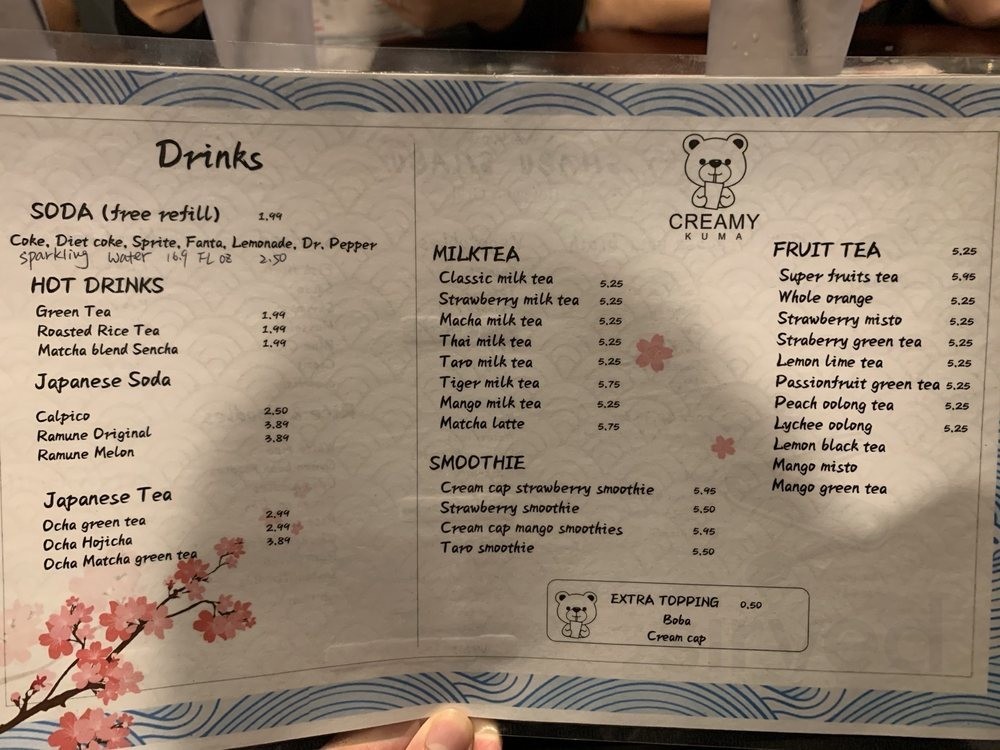 Drinks
SODA (free refill) 1.99
Coke, Diet coke, Sprite, Fanta, Lemonade, Dr. Pepper
sparkling water 16.9 FL oz 2.50
HOT DRINKS
Green Tea 1.99
Roasted Rice Tea 1.99
Matcha blend Sencha 1.99
Japanese Soda
Calpico 2.50
Ramune Original 3.89
Ramune Melon 3.89
Japanese Tea
Ocha green tea 2.99
Ocha Hojicha 2.99
Ocha Matcha green tea 3.89
CREAMY
KUMA
MILKTEA
Classic milk tea 5.25
Strawberry milk tea 5.25
Macha milk tea 5.25
Thai milk tea 5.25
Taro milk tea 5.25
Tiger milk tea 5.75
Mango milk tea 5.25
Matcha latte 5.75
SMOOTHIE
Cream cap strawberry smoothie 5.95
Strawberry smoothie 5.50
Cream cap mango smoothies 5.95
Taro smoothie 5.50
FRUIT TEA 5.25
Super fruits tea 5.95
Whole orange 5.25
Strawberry misto 5.25
Straberry green tea 5.25
Lemon lime tea 5.25
Passionfruit green tea 5.25
Peach oolong tea 5.25
Lychee oolong 5.25
Lemon black tea
Mango misto
Mango green tea
EXTRA TOPPING 0.50
Boba
Cream cap